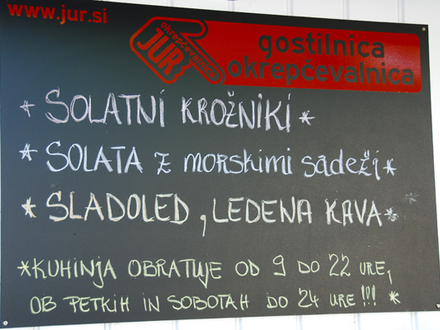 www.jur.si
okrepčevalnica
JUR
gostilnica
okrepčevalnica
* SOLATNI KROŽNIKI *
* SOLATA Z MORSKIMI SADEŽI *
* SLADOLED, LEDENA KAVA *
*KUHINJA OBRATUJE OD 9 DO 22 URE,
OB PETKIH IN SOBOTAH DO 24 URE !!! *